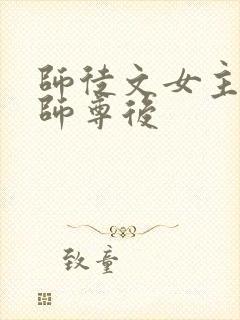 師徒文女主
師尊後
致童